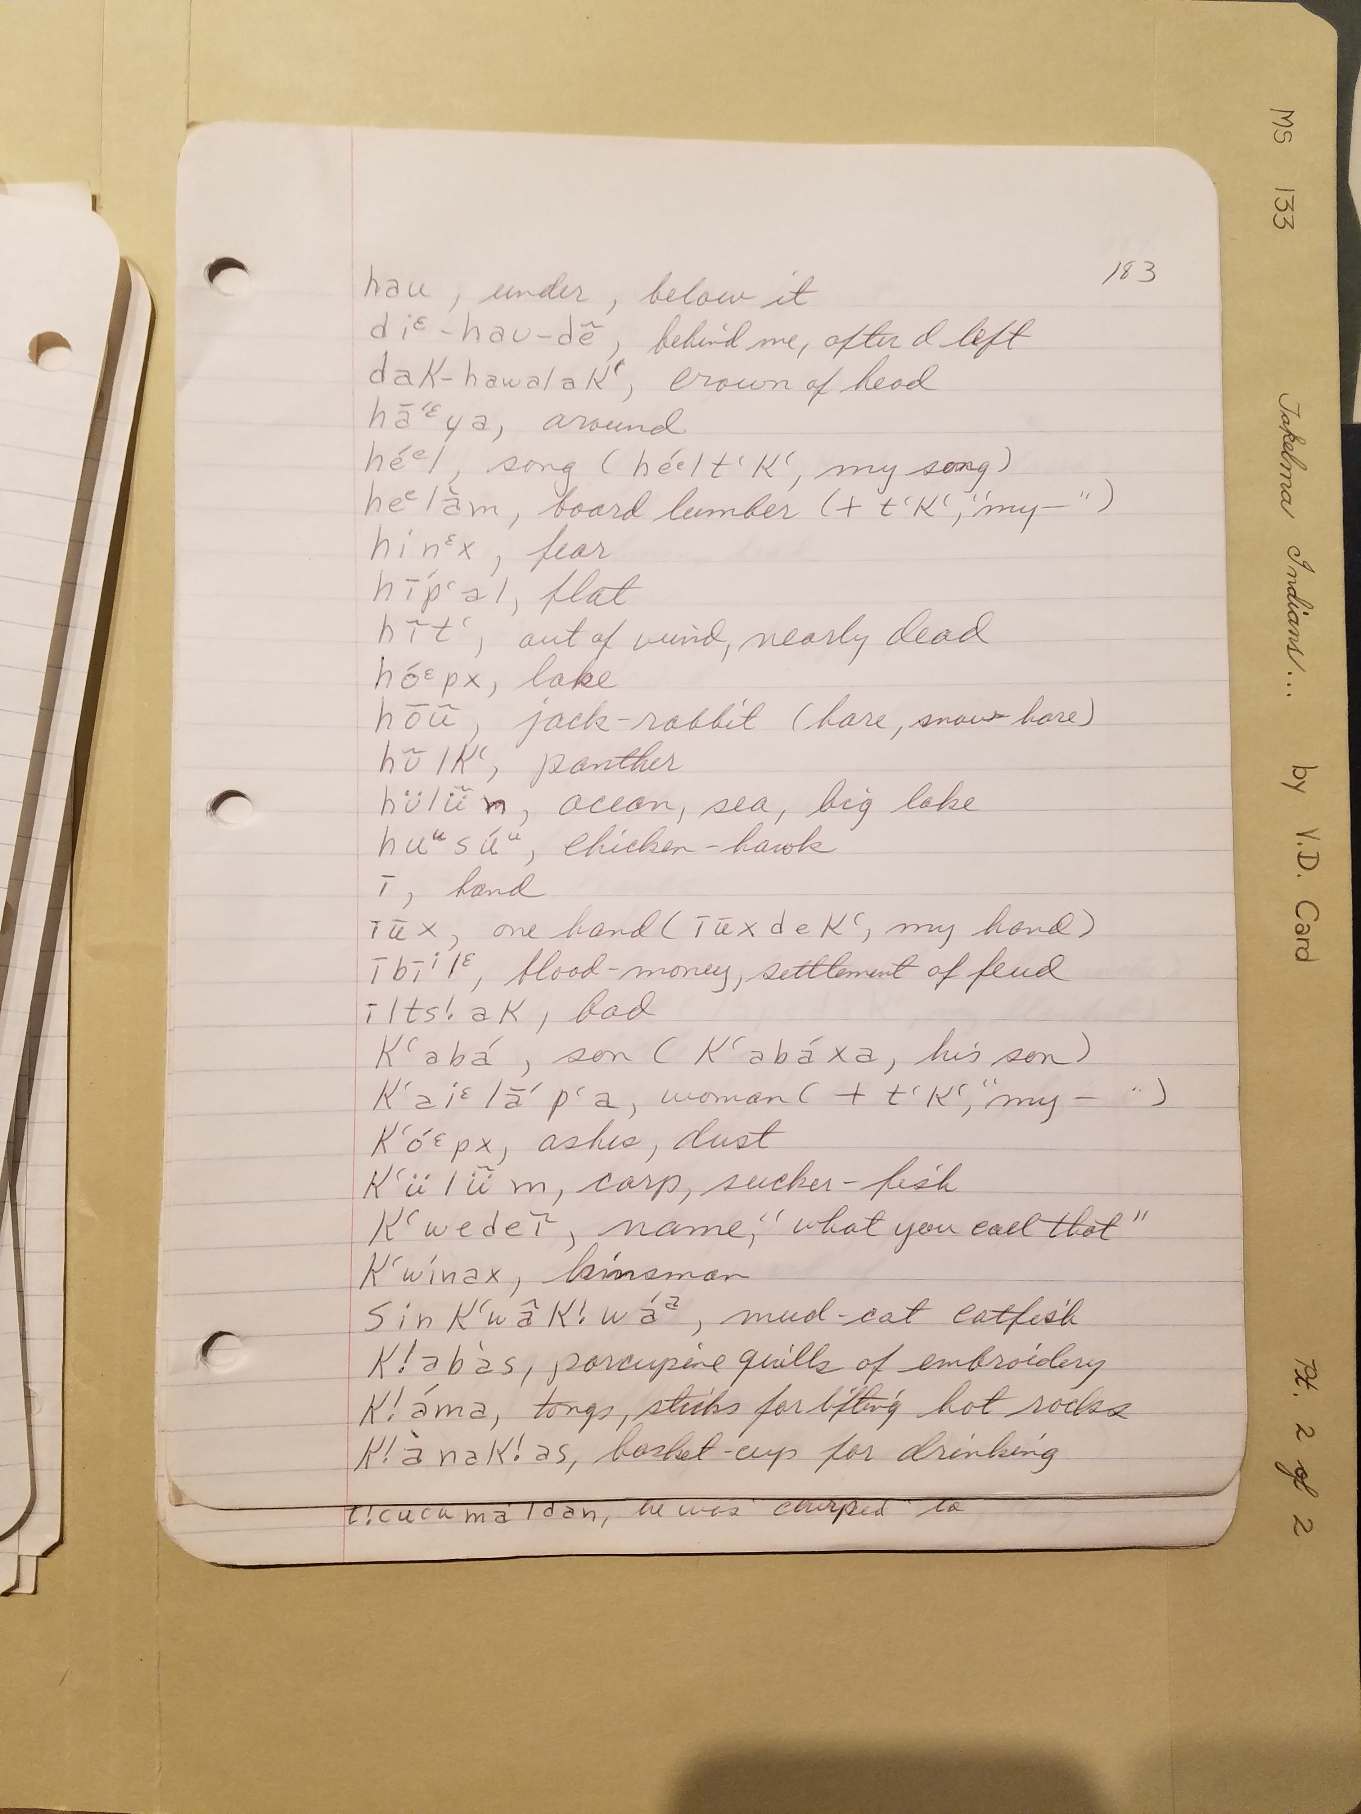 183
hau, under, below it
diᵋ-hau-dẽ, behind me, after I left
daK-hawalaKʻ, crown of head
hā́ᵋya, around
héᵉl, song (héᵉltʻKʻ, my song)
heᵉlàm, board lumber (+ tʻKʻ, "my—")
hinᵋx, fear
hī́pʻal, flat
hĩtʻ, out of wind, nearly dead
hóᵋpx, lake
hōũ, jack-rabbit (hare, snow hare)
hũlKʻ, panther
hülü̃m, ocean, sea, big lake
huᵘsúᵘ, chicken-hawk
ī, hand
īūx, one hand (īūxdeKʻ, my hand)
ībīⁱlᵋ, blood-money, settlement of feud
īlts!aK, bad
Kʻabá, son (Kʻabáxa, his son)
Kʻaiᵋlā́pʻa, woman (+ tʻKʻ, "my— ")
Kʻóᵋpx, ashes, dust
Kʻülü̃m, carp, sucker-fish
Kʻwedeĩ, name, "what you call that"
Kʻwínax, kinsman
sinKʻwâK!wáᵃ, mud-cat catfish
K!abàs, porcupine quills of embroidery
K!áma, tongs, sticks for lifting hot rocks
K!ànaK!as, basket-cup for drinking
t!cucumáldan, he was "chirped" to
MS 133 Takelma Indians... by V.D. Card Pt. 2 of 2